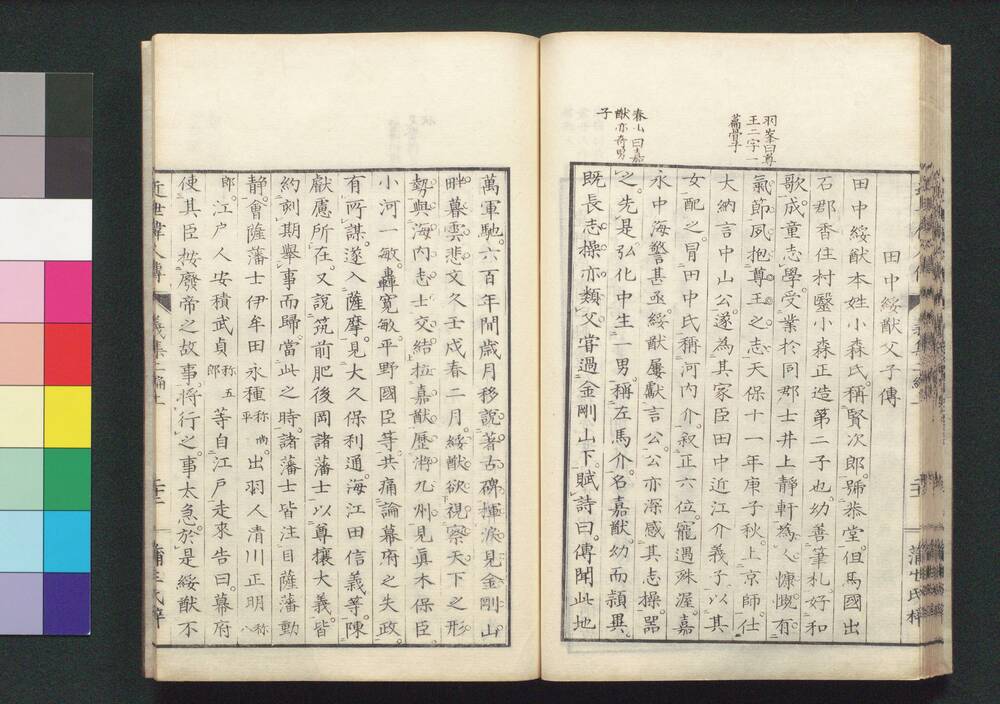 田中綏猷父子傳
田中綏猷本姓小森氏稱賢次郎號恭堂但馬國出
石郡香住村醫小森正造第二子也幼善筆札好和
歌成童志學受業於同郡士井上靜軒為人慷慨有
氣節夙抱尊王之志天保十一年庚子秋上京師仕
大納言中山公遂為其家臣田中近江介義子以其
女配之冒田中氏稱河內介叙正六位寵遇殊渥嘉
永中海警甚亟綏猷屢獻言公公亦深感其志操器
之先是弘化中生一男稱左馬介名嘉猷幼而頴異
既長志操亦類父嘗過金剛山下賦詩曰傳聞此地
羽峯曰尊
王二字一
篇骨子
春山曰嘉
猷亦奇男
子
萬軍馳六百年間歲月移說著古碑揮淚見金剛山
畔暮雲悲文久壬戌春二月綏猷欲視察天下之形
勢與海內志士交結拉嘉猷歷游九州見真木保臣
小河一敏轟寬敏平野國臣等共痛論幕府之失政
有所謀遂入薩摩見大久保利通海江田信義等陳
獻慮所在又說筑前肥後岡諸藩士以尊攘大義皆
約刻期舉事而歸當此之時諸藩士皆注目薩藩動
靜會薩藩士伊牟田永種稱尚平出羽人清川正明稱八
郎江戶人安積武貞稱五郎等自江戶走來告曰幕府
使其臣按廢帝之故事將行之事太急於是綏猷不
近世偉人傳
義集二編
二十一
蒲生氏梓